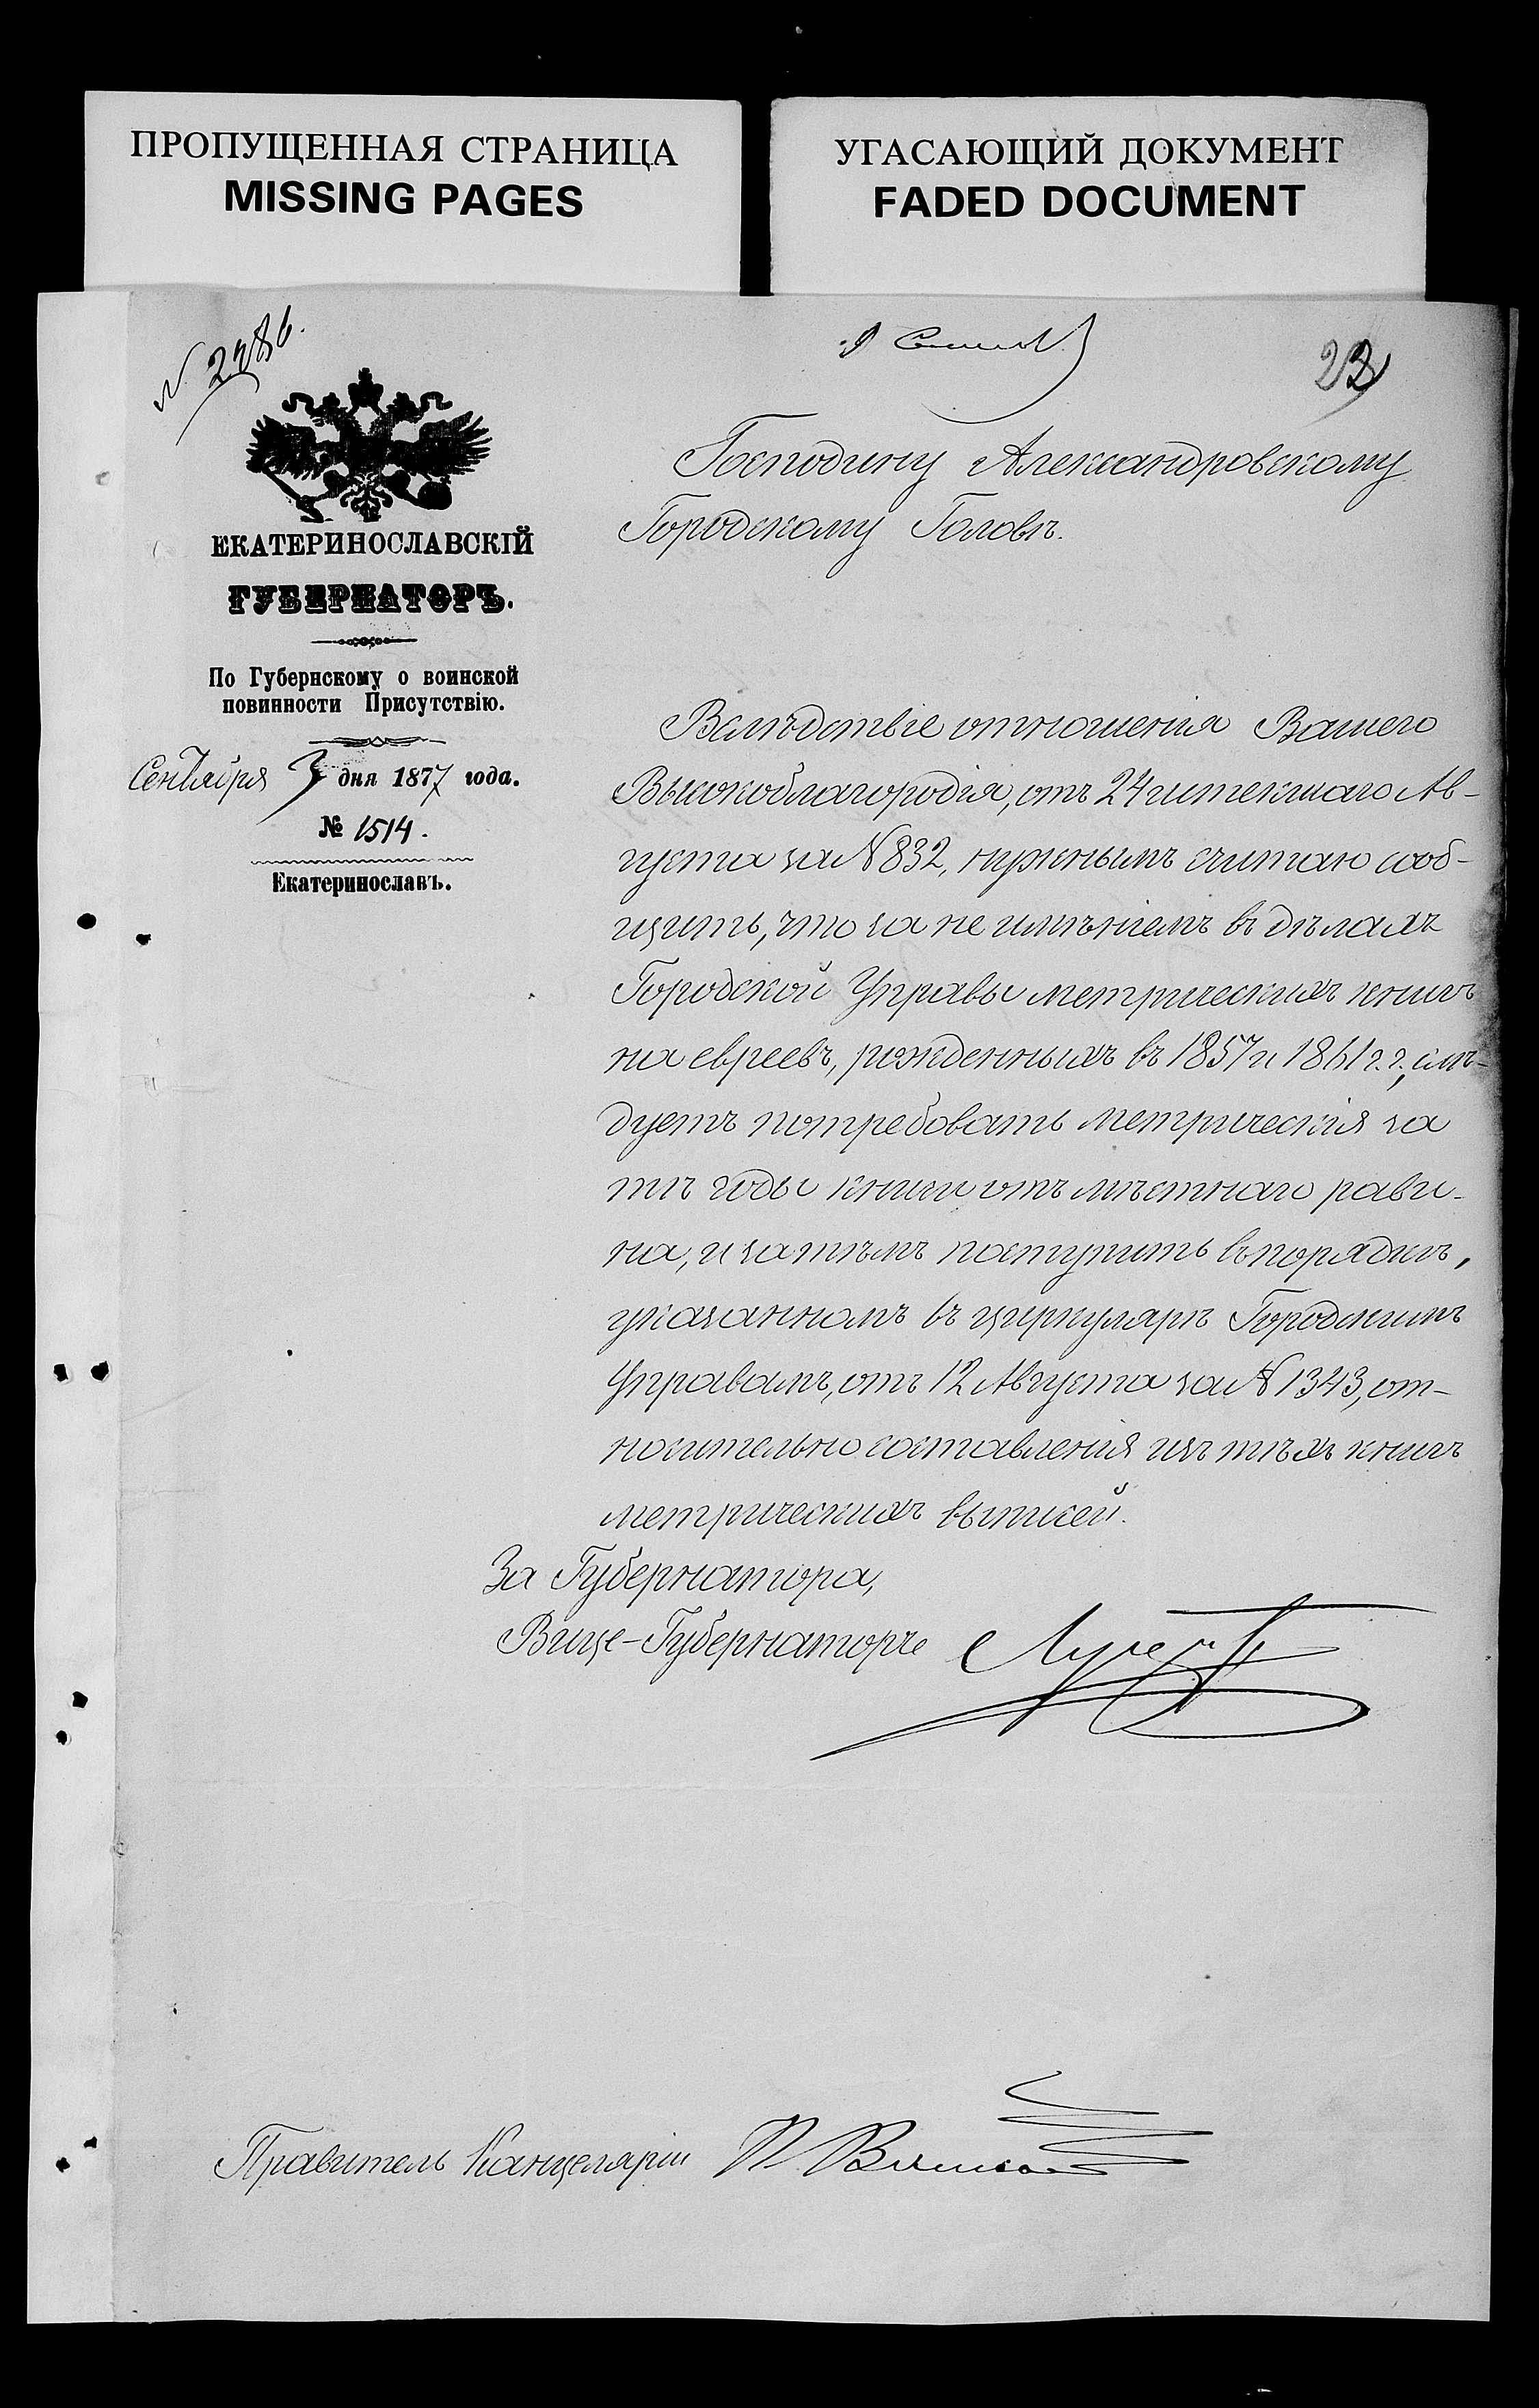 ПРОПУЩЕННАЯ СТРАНИЦА
MISSING PAGES
УГАСАЮЩИЙ ДОКУМЕНТ
FADED DOCUMENT
Господину Александровскому
Городскому Головѣ.
ЕКАТЕРИНОСЛАВСКІЙ
ГУБЕРНАТОРЪ.
По Губернскому о воинской
повинности Присутствію.
Сентября 3 дня 1877 года.
№ 1514.
Екатеринославъ.
Вслѣдствіе отношенія Вашего
Высокоблагородія, отъ 24 истекшаго Ав-
густа за № 832, нужнымъ считаю сооб-
щить, что за не имѣніемъ въ дѣлахъ
Городской Управы метрическихъ книгъ
на евреевъ, рожденныхъ въ 1857 и 1861 г.г., слѣ-
дуетъ потребовать метрическія за
тѣ годы книги отъ мѣстнаго рави-
на, и затѣмъ поступить въ порядкѣ,
указанномъ въ циркулярѣ Городскимъ
Управамъ, отъ 12 Августа за № 1343, от-
носительно составленія изъ тѣхъ книгъ
метрическихъ выписей.
За Губернатора,
Вице-Губернаторъ
Правитель Канцеляріи